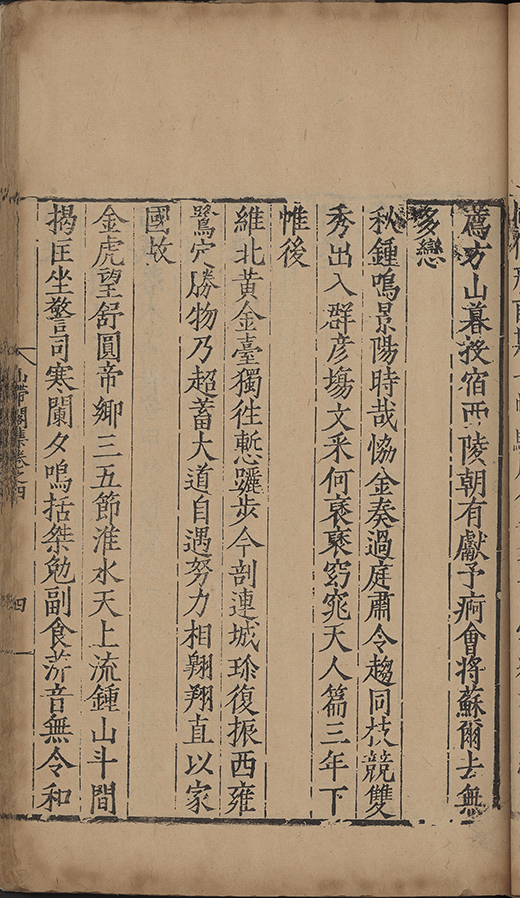 薦方山暮投宿西陵朝有獻予痾會將蘇爾去無
多戀
秋鍾鳴景陽時哉恊金奏過庭肅令趨同枝競雙
秀出入群彥塲文采何襃襃窈窕天人篇三年下
帷後
維北黃金臺獨徃慙躧步今剖連城珍復振西雍
鷺穴勝物乃超蓄大道自遇努力相翺翔直以家
國故
金虎望舒圓帝鄉三五節淮水天上流鍾山斗間
揭匡坐警司寒闌夕鳴括桀勉副食苹音無令和
山帶閣集卷之四
四